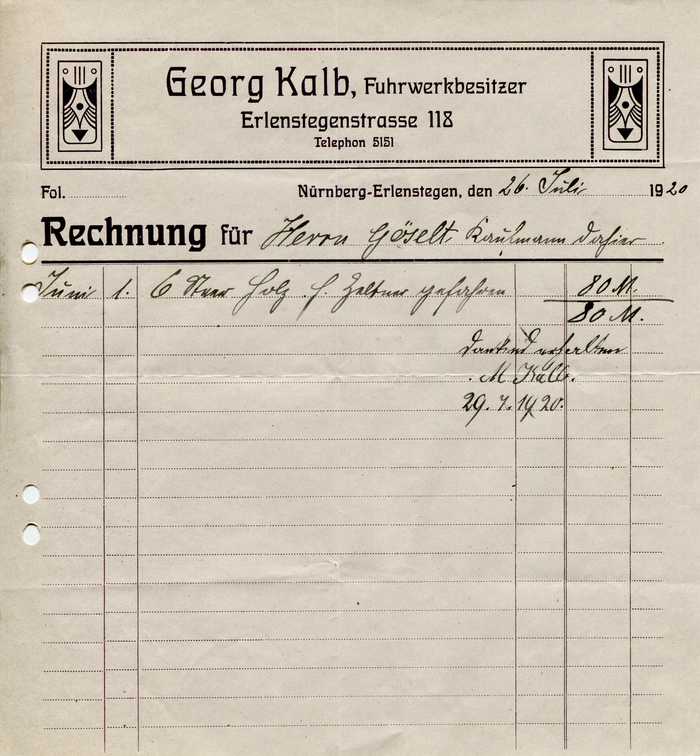 Georg Kalb, Fuhrwerkbesitzer
Erlenstegenstrasse 118
Telephon 5151
Fol.
Nürnberg-Erlenstegen, den 26. Juli 1920
Rechnung für Herrn Göselt, Kaufmann dahier.
Juni 1. 6 Steer Holz f. Zeltner gefahren 80 M.
80 M.
Dankend erhalten
M. Kalb.
29. 7. 1920.